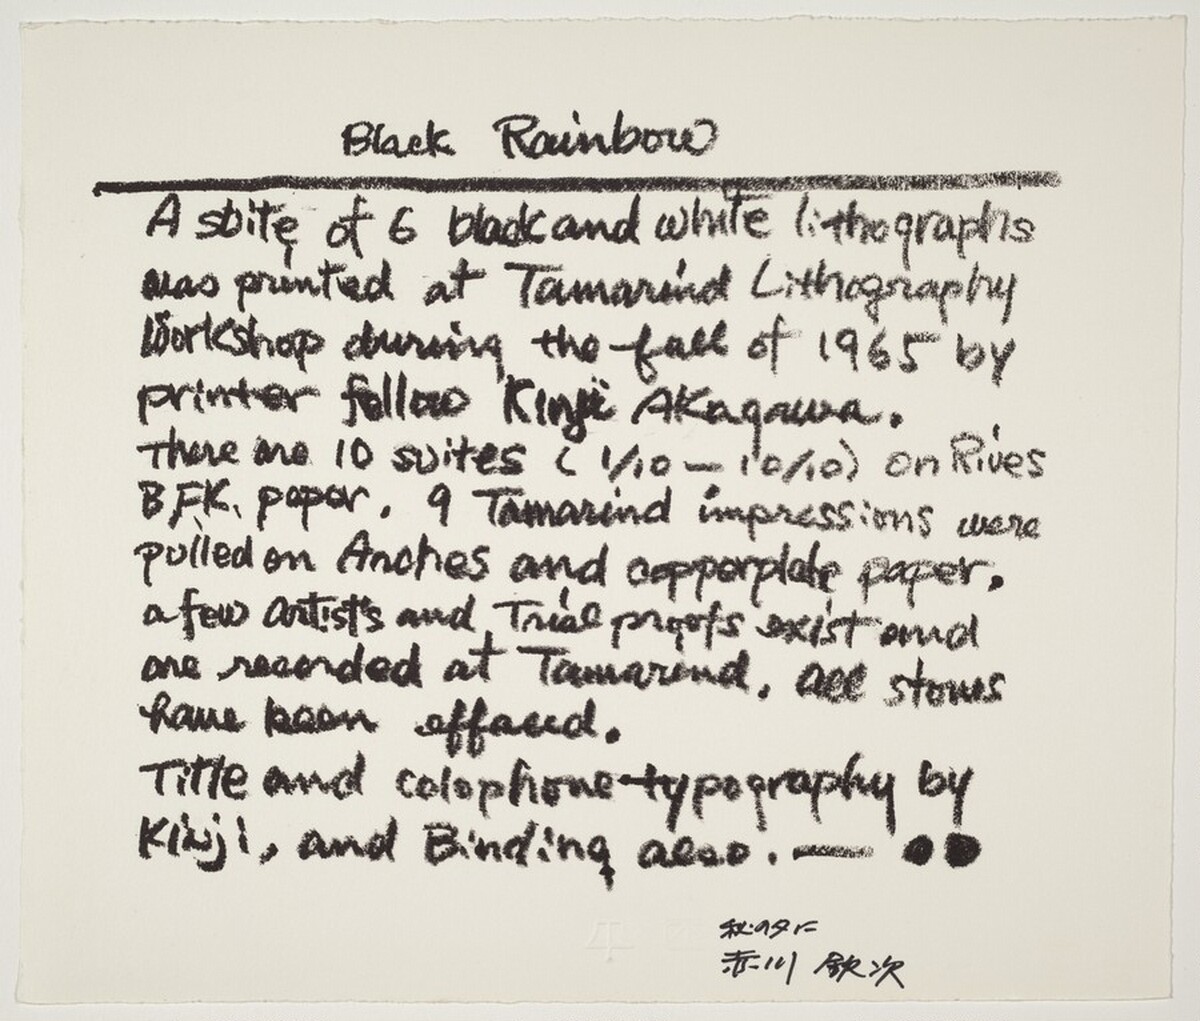 Black Rainbow
A suite of 6 black and white lithographs
was printed at Tamarind Lithography
Workshop during the fall of 1965 by
printer fellow Kinji Akagawa.
There are 10 suites ( 1/10 — 10/10) on Rives
B.F.K. paper. 9 Tamarind impressions were
pulled on Arches and copperplate paper.
a few artist's and Trial proofs exist and
are recorded at Tamarind. All stones
have been effaced.
Title and colophone typography by
Kinji, and Binding also. — ●●
秋の夕に
赤川 欽次